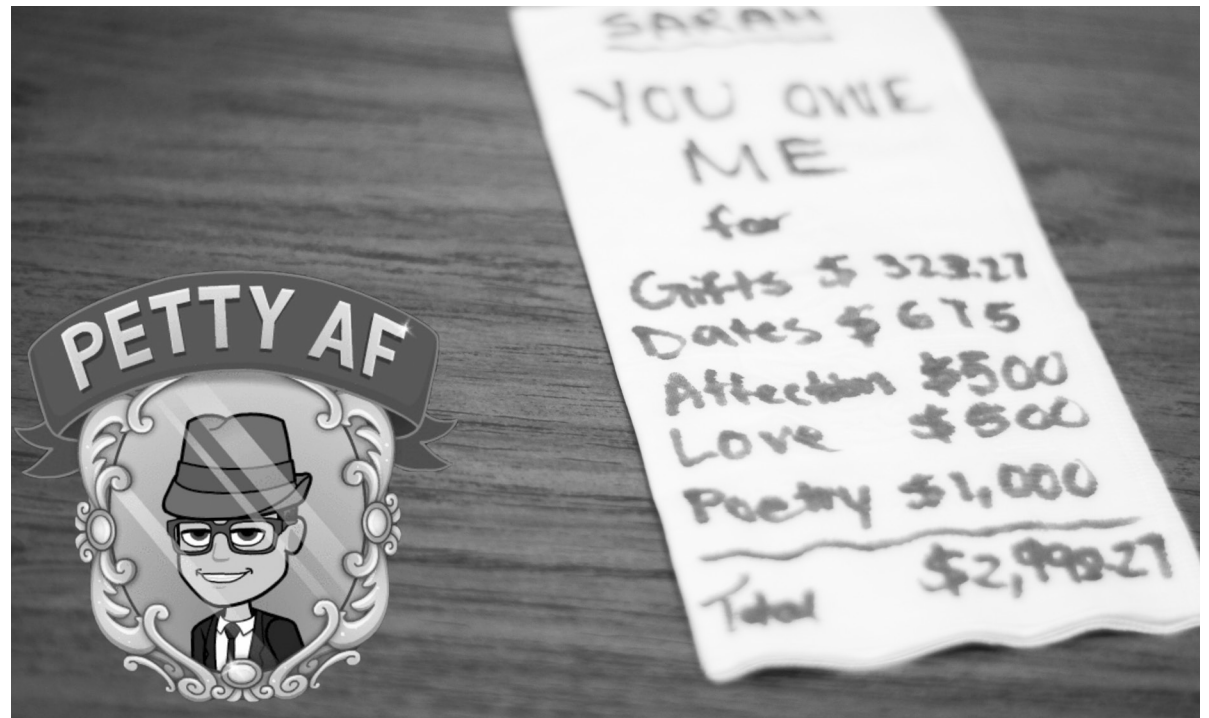 SARAH
YOU OWE
ME
for
Gifts $ 323.27
Dates $ 675
Affection $500
Love $500
Poetry $1,000
Total $2,998.27
PETTY AF